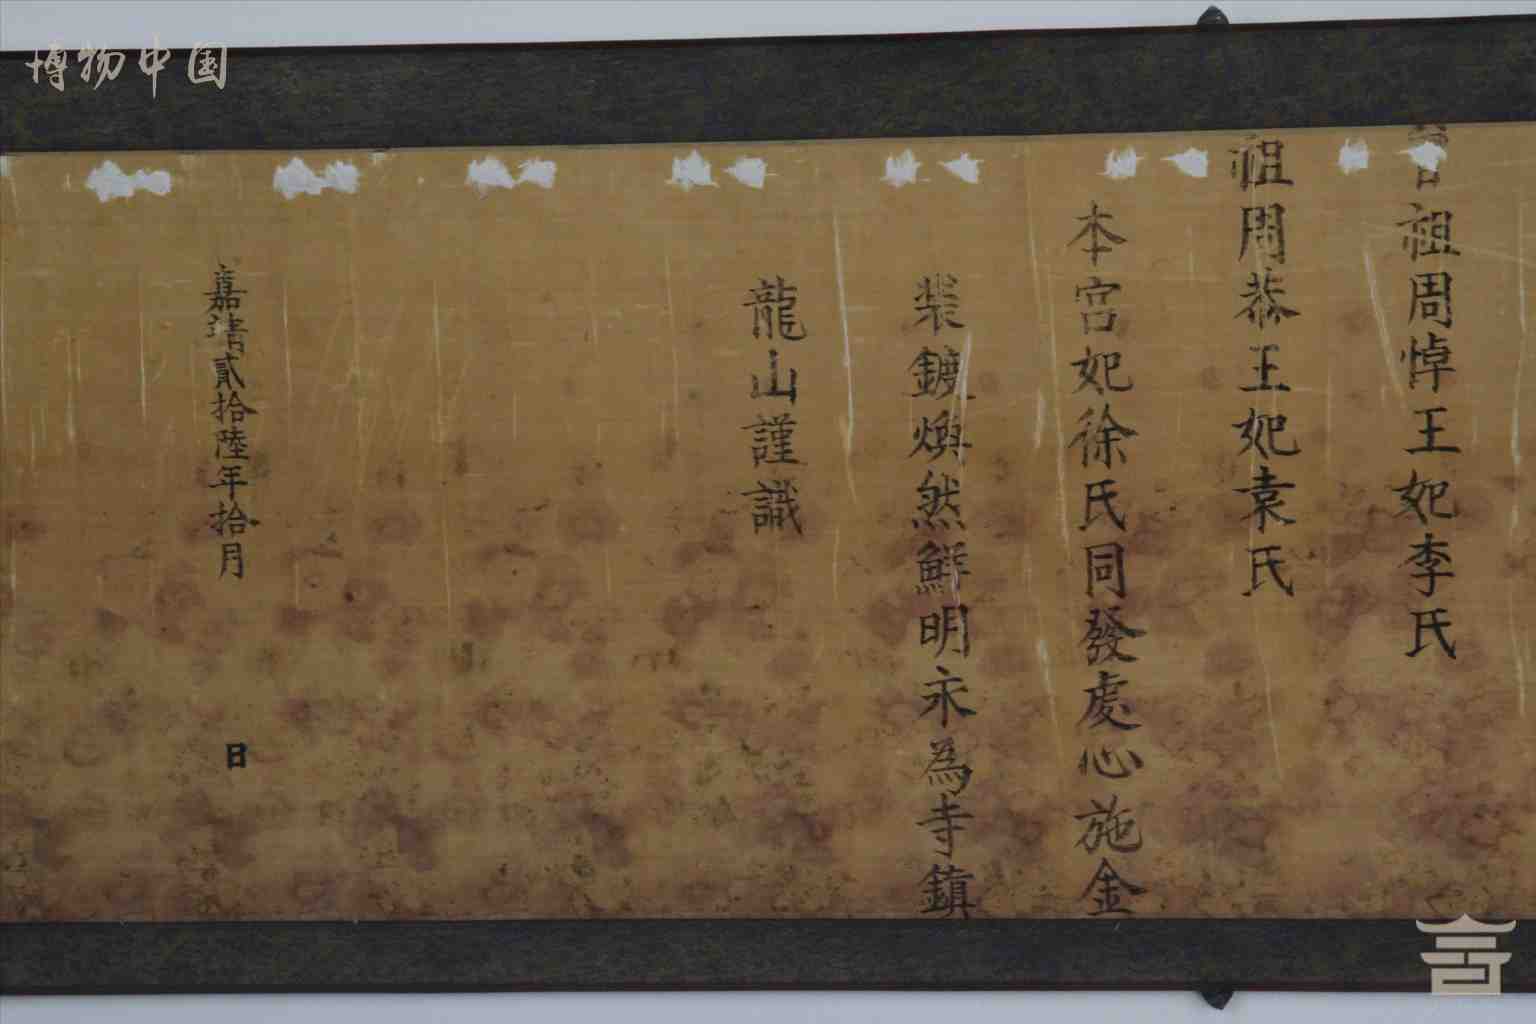 祖周悼王妃李氏
祖周恭王妃袁氏
本宮妃徐氏同發處心施金
裝鍍煥然鮮明永為寺鎮
龍山謹識
嘉靖貳拾陸年拾月
日
博物中国